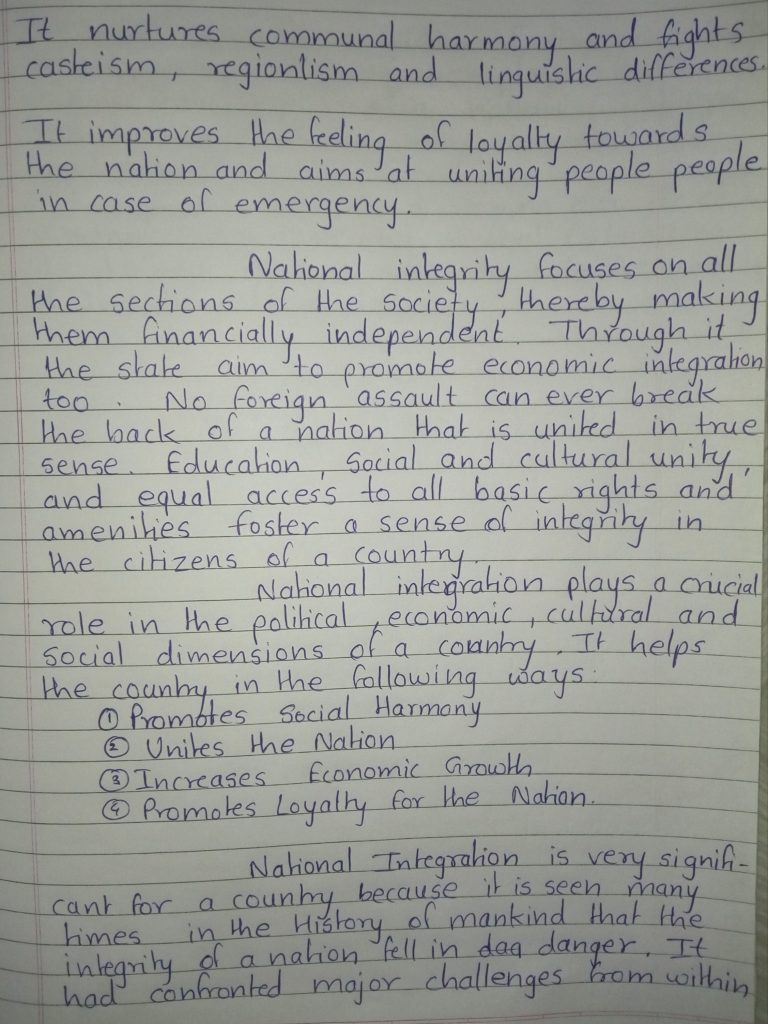 It nurtures communal harmony and fights
casteism, regionlism and linguistic differences.
It improves the feeling of loyalty towards
the nation and aims at uniting people people
in case of emergency.
National integrity focuses on all
the sections of the society, thereby making
them financially independent. Through it
the state aim to promote economic integration
too. No foreign assault can ever break
the back of a nation that is united in true
sense. Education, Social and cultural unity,
and equal access to all basic rights and
amenities foster a sense of integrity in
the citizens of a country.
National integration plays a crucial
role in the political, economic, cultural and
social dimensions of a country. It helps
the country in the following ways:
① Promotes Social Harmony
② Unites the Nation
③ Increases Economic Growth
④ Promotes Loyalty for the Nation.
National Integration is very signifi-
cant for a country because it is seen many
times in the History of mankind that the
integrity of a nation fell in danger. It
had confronted major challenges from within